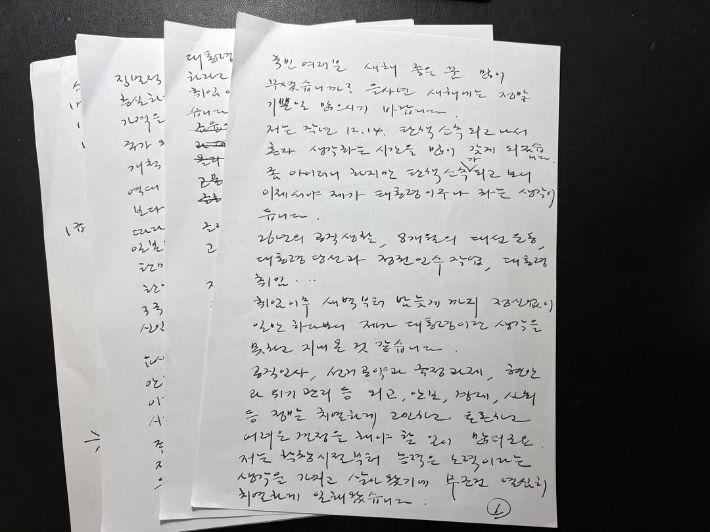 국민 여러분 새해 좋은 꿈 많이
꾸셨습니까? 을사년 새해에는 정말
기쁜일 많으시기 바랍니다.
저는 작년 12.14. 탄핵소추되고 나서
혼자 생각하는 시간을 많이 갖게 되었습
좀 아이러니 하지만 탄핵소추가 되고 보니
이제서야 제가 대통령이구나 하는 생각이
듭니다.
26년의 공직생활, 8개월의 대선 운동,
대통령 당선과 정권 인수 작업, 대통령
취임....
취임이후 새벽부터 밤늦게 까지 정신없이
일만 하다보니 제가 대통령이란 생각을
못하고 지내온 것 같습니다.
공직인사, 선거공약과 국정과제, 현안
과 위기 관리 등 외교, 안보, 경제, 사회
등 정말 치열하게 고민하고 토론하고
어려운 결정을 해야 할 일이 많더군요.
저는 학창시절부터 능력은 노력이라는
생각을 가지고 살아왔기에 무조건 열심히
치열하게 일해 왔습니다.
1
대통령
하라고
취임
습니다
징벌적
충실하
가격은
국가
개혁
역대
보다
따라
일본
한미
3국